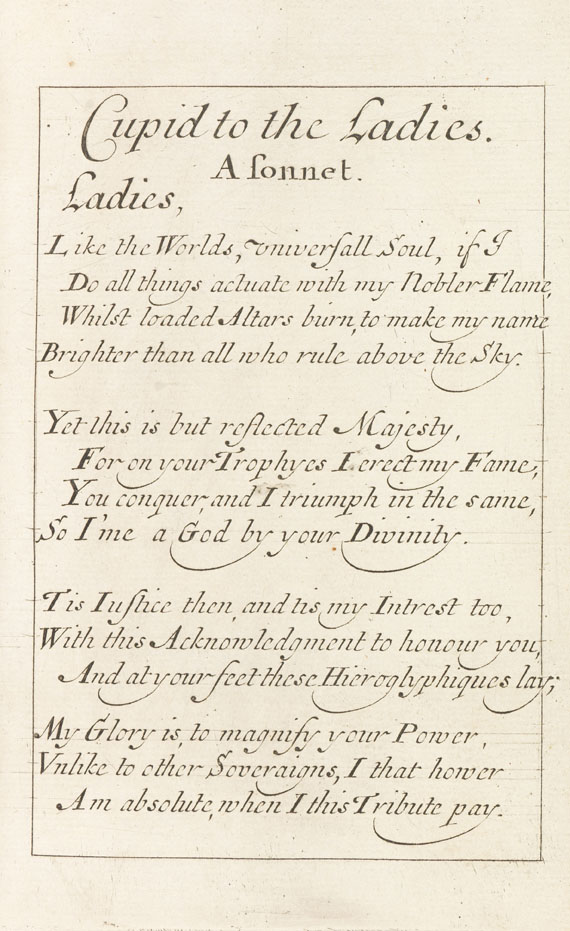 Cupid to the Ladies.
A sonnet.
Ladies,
Like the Worlds, vniversall Soul, if I
Do all things actuate with my Nobler Flame,
Whilst loaded Altars burn, to make my name
Brighter than all who rule above the Sky.
Yet this is but reflected Majesty,
For on your Trophyes I erect my Fame,
You conquer, and I triumph in the same,
So I'me a God by your Divinity.
Tis Iustice then, and tis my Intrest too,
With this Acknowledgment to honour you,
And at your feet these Hieroglyphiques lay;
My Glory is, to magnify your Power,
Vnlike to other Soveraigns, I that hower
Am absolute, when I this Tribute pay.